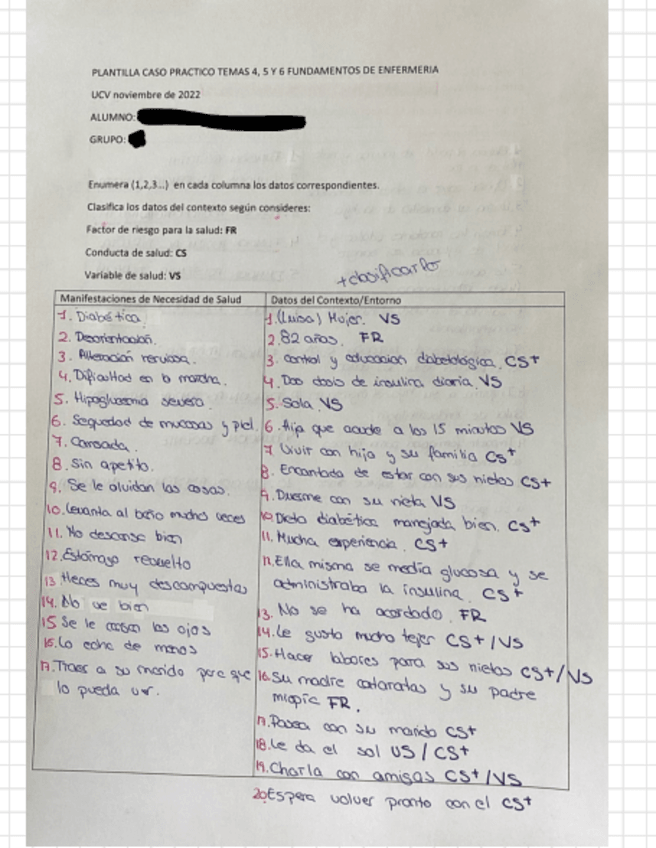 PLANTILLA CASO PRACTICO TEMAS 4, 5 Y 6 FUNDAMENTOS DE ENFERMERIA
UCV noviembre de 2022
ALUMNO:
GRUPO:
Enumera (1,2,3...) en cada columna los datos correspondientes.
Clasifica los datos del contexto según consideres:
Factor de riesgo para la salud: FR
Conducta de salud: CS
Variable de salud: VS
+clasificarlos
Manifestaciones de Necesidad de Salud
1. Diabética.
2. Desorientación.
3. Alteración nerviosa.
4. Dificultad en la marcha.
5. Hipoglucemia severa.
6. Sequedad de mucosas y piel.
7. Cansada.
8. Sin apetito.
9. Se le olvidan las cosas.
10. Levanta al baño muchas veces
11. No descansa bien
12. Estómago revuelto
13 Heces muy descompuestas
14. No ve bien
15 Se le cansan los ojos
16. Lo echa de menos
17. Traer a su marido para que
lo pueda ver.
Datos del Contexto/Entorno
1. (Luisa) Mujer. VS
2. 82 años. FR
3. control y educación diabetológica. CS+
4. Dos dosis de insulina diaria. VS
5. Sola. VS
6. Hija que acude a los 15 minutos VS
7 Vivir con hija y su familia CS+
8. Encantada de estar con sus nietos CS+
9. Duerme con su nieta VS
10 Dieta diabética manejada bien. CS+
11. Mucha experiencia. CS+
12. Ella misma se media glucosa y se
administraba la insulina. CS+
13. No se ha acordado. FR
14. Le gusta mucho tejer CS+/VS
15. Hacer labores para sus nietos CS+/VS
16. Su madre cataratas y su padre
miopía FR.
17. Pasea con su marido CS+
18. Le da el sol VS / CS+
19. Charla con amigas CS+/VS
20. Espera volver pronto con el CS+